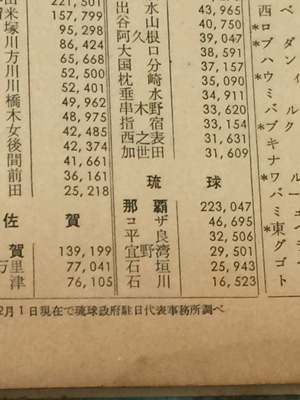 米 157,799
塚 95,298
川 86,424
方 65,668
川 52,500
川 52,401
橋 49,962
木 48,975
女 42,485
後 42,374
間 41,661
前 36,161
田 25,218
佐賀
賀 139,199
万里 77,041
津 76,105
出水 43,965
谷山 40,750
阿久根 39,047
大口 38,591
国分 37,157
枕崎 35,090
垂水 34,911
串木野 33,620
指宿 33,154
西之表 31,631
加世田 31,609
琉球
那覇 223,047
コザ 46,695
平良 32,506
宜野湾 29,501
石垣 25,943
石川 16,523
西
ロ
*ブ
ハ
*ウ
ミ
バ
*ブ
キ
ナ
*ワ
パ
ミ
*東
グ
ゴ
ト
2月1日現在で琉球政府駐日代表事務所調べ